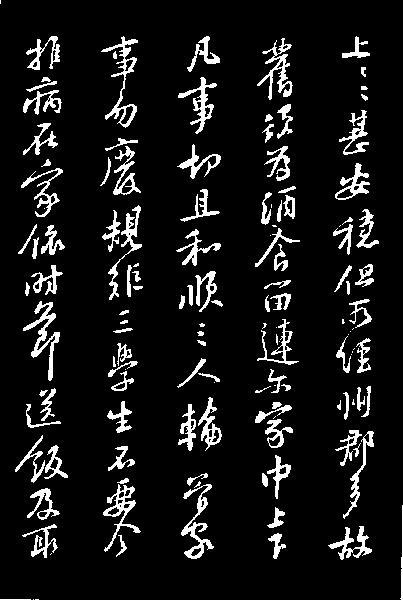 上々甚安穩但所經州郡多故
舊須為酒食留連尔家中上下
凡事切且和順三人輪管家
事勿廢規矩三學生不要令
推病在家依時節送飯及取